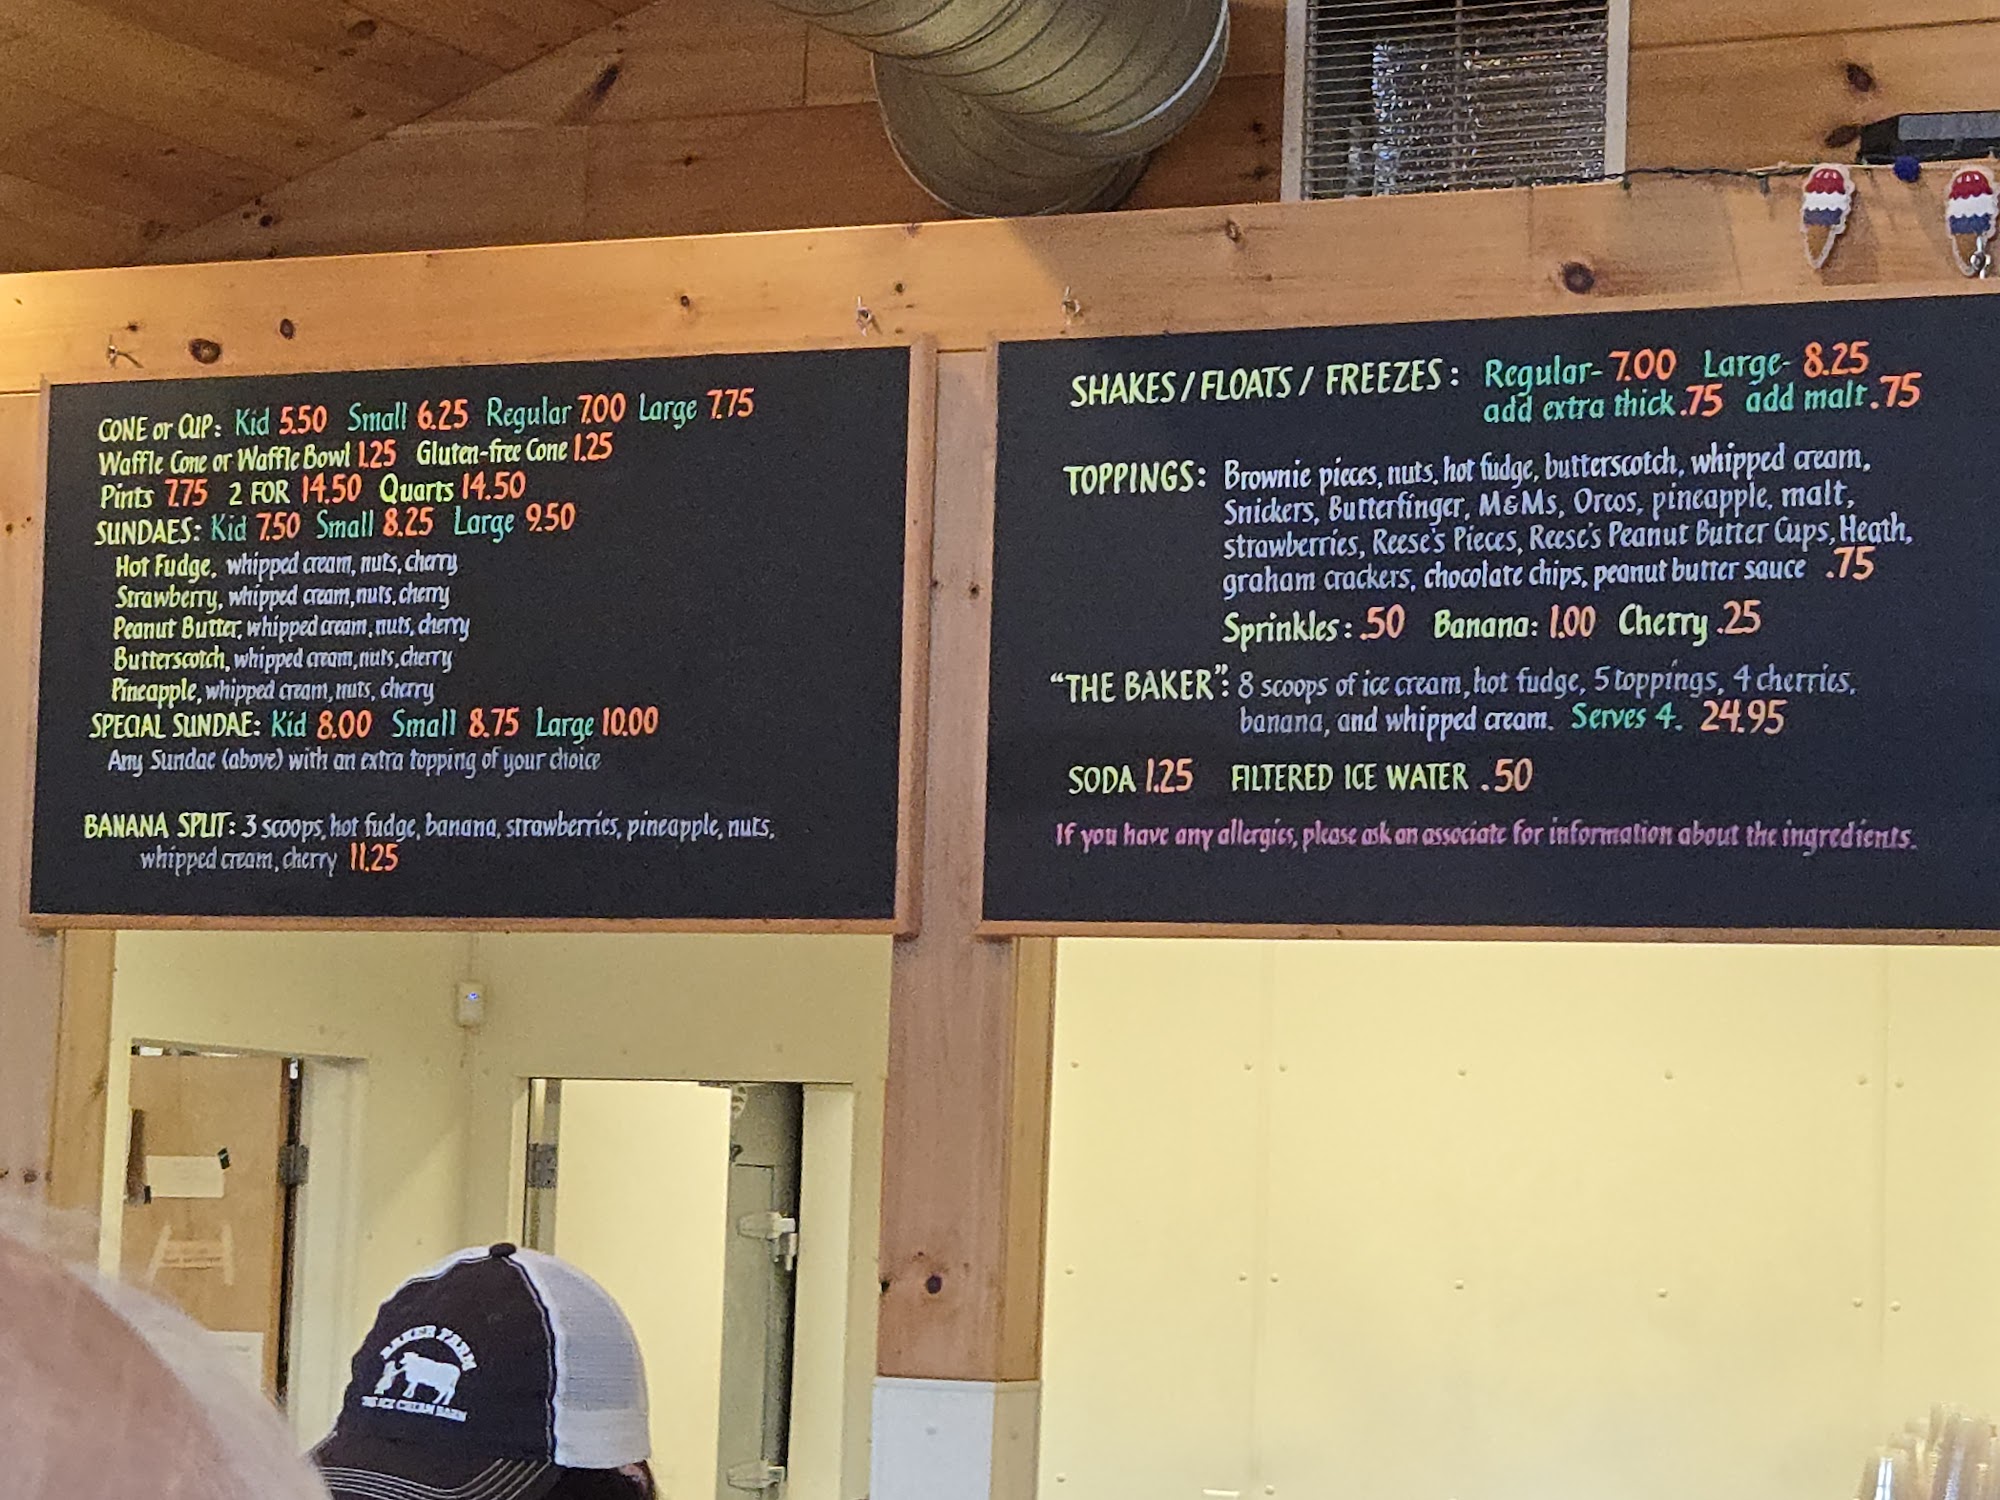 CONE or CUP: Kid 5.50 Small 6.25 Regular 7.00 Large 7.75
Waffle Cone or Waffle Bowl 1.25 Gluten-free Cone 1.25
Pints 7.75 2 FOR 14.50 Quarts 14.50
SUNDAES: Kid 7.50 Small 8.25 Large 9.50
Hot Fudge, whipped cream, nuts, cherry
Strawberry, whipped cream, nuts, cherry
Peanut Butter, whipped cream, nuts, cherry
Butterscotch, whipped cream, nuts, cherry
Pineapple, whipped cream, nuts, cherry
SPECIAL SUNDAE: Kid 8.00 Small 8.75 Large 10.00
Any Sundae (above) with an extra topping of your choice
BANANA SPLIT: 3 scoops, hot fudge, banana, strawberries, pineapple, nuts,
whipped cream, cherry 11.25
SHAKES / FLOATS / FREEZES: Regular- 7.00 Large- 8.25
add extra thick .75 add malt .75
TOPPINGS: Brownie pieces, nuts, hot fudge, butterscotch, whipped cream,
Snickers, Butterfinger, M&Ms, Oreos, pineapple, malt,
strawberries, Reese's Pieces, Reese's Peanut Butter Cups, Heath,
graham crackers, chocolate chips, peanut butter sauce .75
Sprinkles: .50 Banana: 1.00 Cherry .25
"THE BAKER": 8 scoops of ice cream, hot fudge, 5 toppings, 4 cherries,
banana, and whipped cream. Serves 4. 24.95
SODA 1.25 FILTERED ICE WATER .50
If you have any allergies, please ask an associate for information about the ingredients.
BAKER FARM
THE ICE CREAM BARN